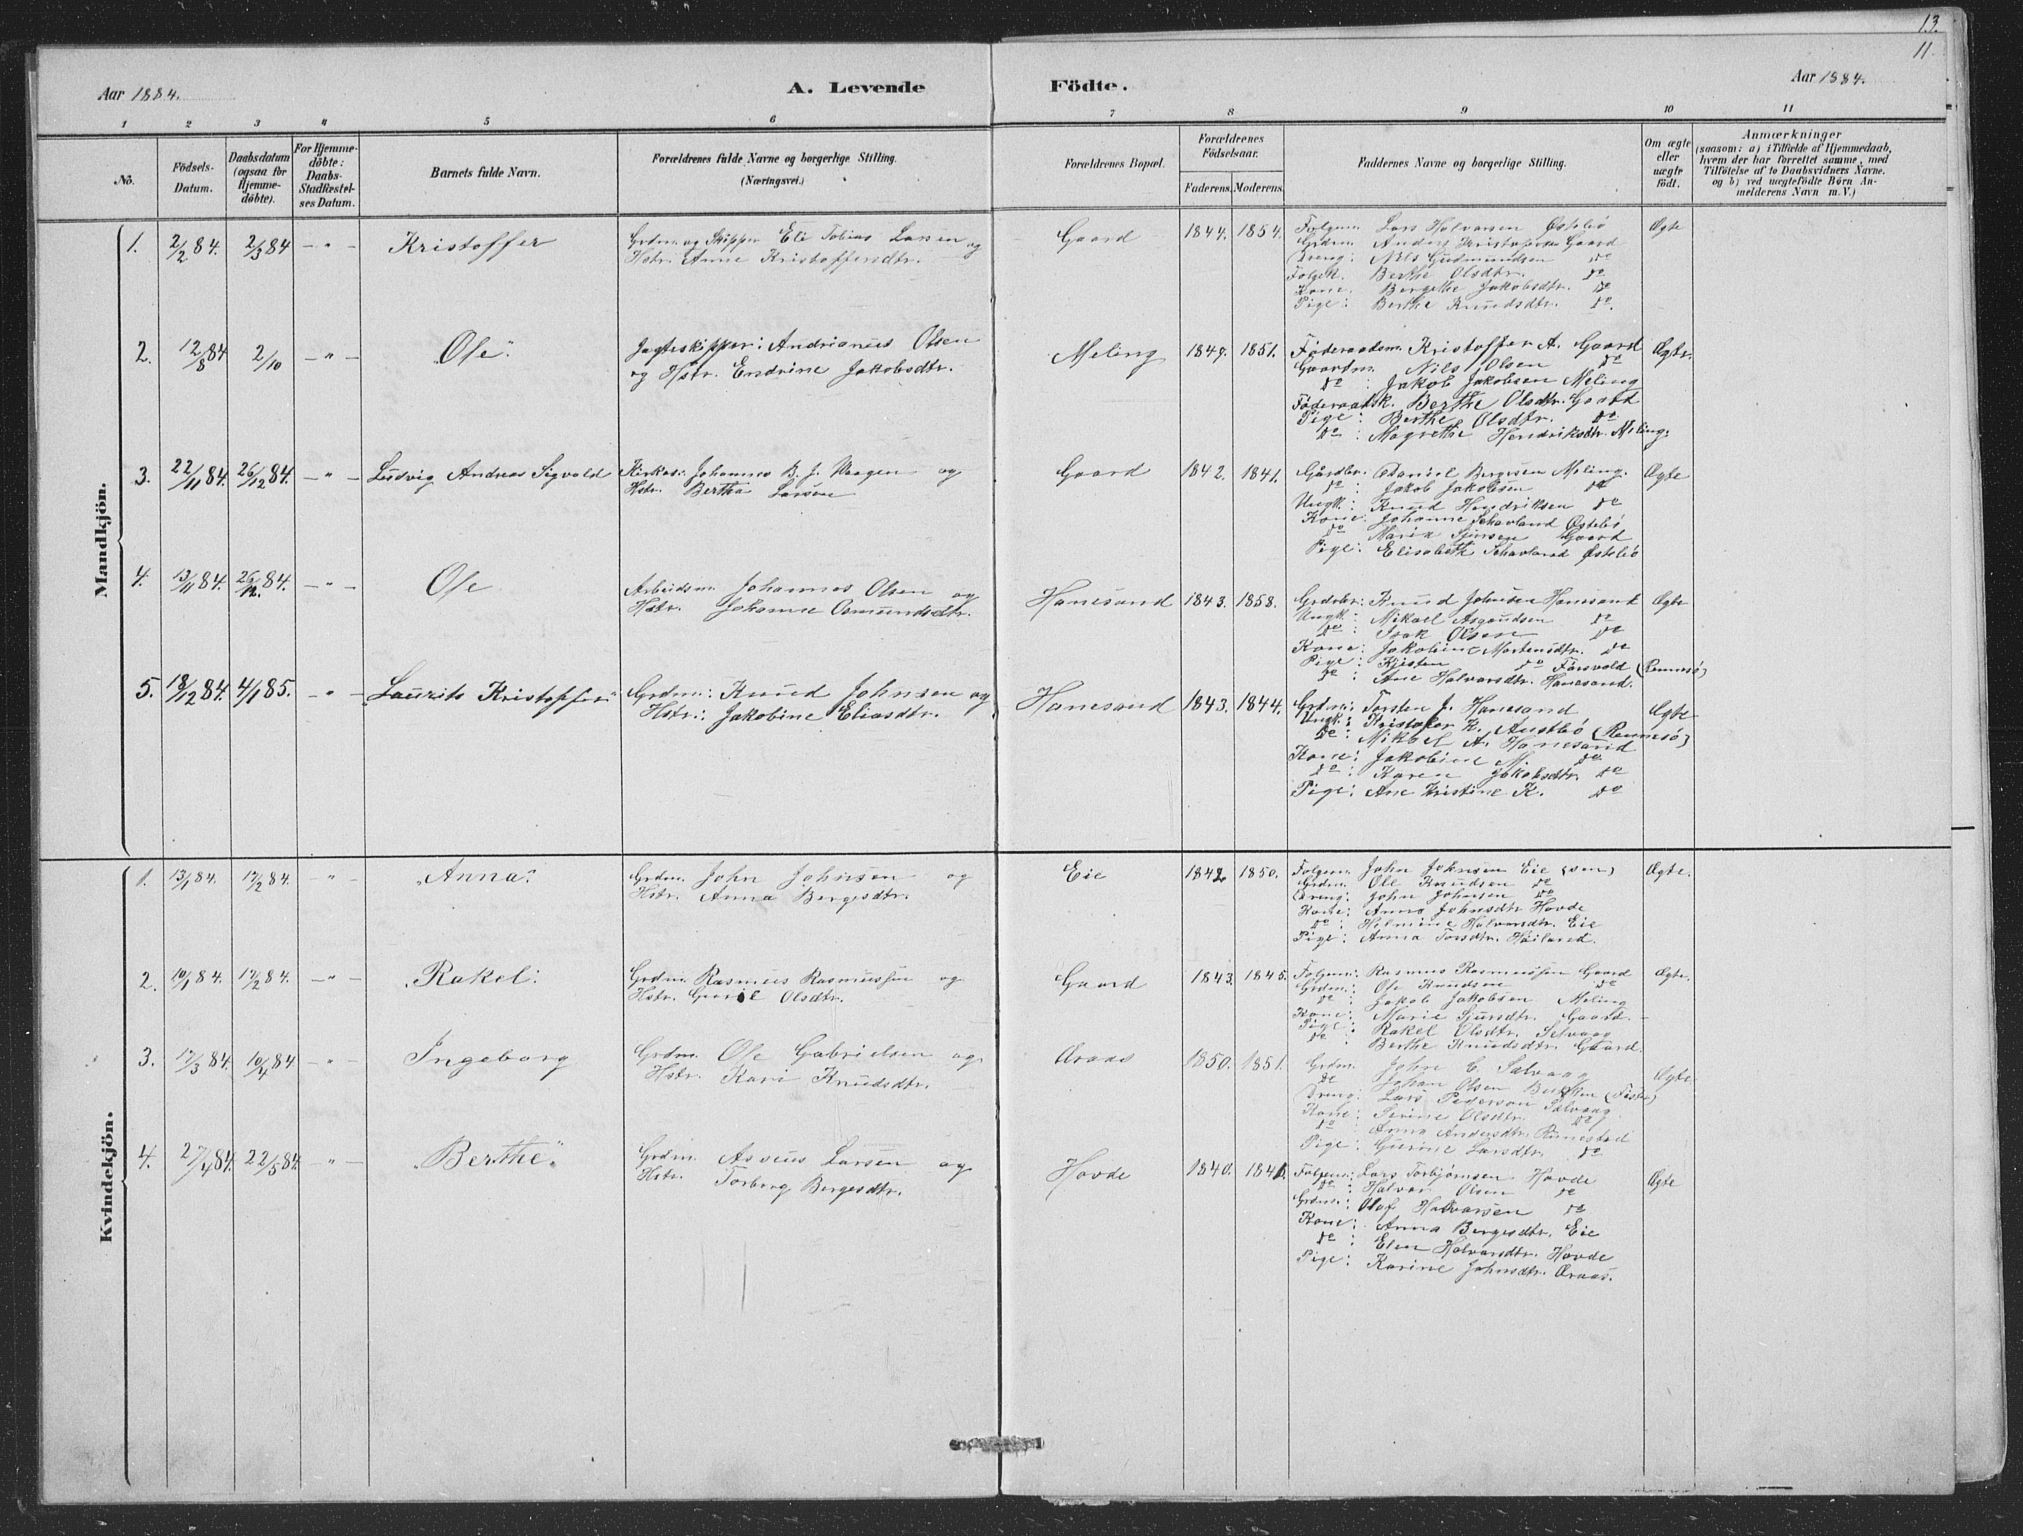 13.
11.
Aar 1884.
A. Levende Födte.
Aar 1884.
1 2 3 4 5 6 7 8 9 10 11
No.
Födsels-Datum.
Daabsdatum (ogsaa for Hjemme-döbte).
For Hjemme-döbte: Daabs-Stadfæstel-ses Datum.
Barnets fulde Navn.
Forældrenes fulde Navne og borgerlige Stilling. (Næringsvei.)
Forældrenes Bopæl.
Forældrenes Födselsaar.
Faderens. Moderens.
Faddernes Navne og borgerlige Stilling.
Om ægte eller uægte födt.
Anmærkninger
(saasom: a) i Tilfælde af Hjemmedaab,
hvem der har forrettet samme, med
Tilföielse af to Daabsvidners Navne.
og b) ved uægtefödte Börn An-
melderens Navn m. V.)
Mandkjön.
1. 2/2 84. 2/3 84 — " — Kristoffer
Grdm. og Skipper Eli Tobias Larsen og
Hstr. Anne Kristoffersdtr.
Gaard 1844. 1854.
Folgem. Lars Halvorsen Østebø
Grdm. Anders Kristofersen Gaard
Dreng: Nils Gudmundsen do
Folgek. Berthe Olsdtr. do
Kone: Bergethe Jakobsdtr. do
Pige: Berthe Knudsdtr. do
Ægte
2. 12/8 84 2/10 — " — Ole.
Jagtskipper: Andrianus Olsen
og Hstr. Endrine Jakobsdtr.
Meling 1849. 1851.
Föderaadsm. Kristoffer A. Gaard
Gaardm. Nils Olsen do
do : Jakob Jakobsen Meling
Föderaadsk. Berthe Olsdtr. Gaard
Pige: Berthe Olsdtr. do
do : Magrethe Hendriksdtr. Meling.
Ægte.
3. 22/11 84. 26/12 84. — " — Ludvig Andreas Sigvald
Kirkes: Johannes B. J. Vaagen og
Hstr. Bertha Larsen
Gaard 1842. 1841.
Gårdbr. Daniel Bergesen Meling.
do : Jakob Jakobsen do
Ungk: Knud Hendriksen do
Kone: Johanne Schavland Østebø
do Maria Sjursen Gaard
Pige: Elisabeth Schavland Østebø
Ægte
4. 13/11 84. 26/12. 84. — " — Ole
Arbeidsm. Johannes Olsen og
Hstr. Johanne Osmundsdtr.
Hanesand 1843. 1858.
Grdbr: Knud Johnsen Hanesand
Ungk: Mikael Asgaudsen do
do : Isak Olsen do
Kone: Jakobine Mortensdtr. do
Pige: Kjisten do Førsvold (Rennesø)
do : Ane Halvorsdtr. Hanesand.
Ægte
5. 18/12 84. 4/1 85. — " — Laurits Kristoffer
Grdm: Knud Johnsen og
Hstr: Jakobine Eliasdtr.
Hanesand 1843. 1844.
Grdm: Torsten J. Hanesand
Ungk: Kristofer K. Austbø (Rennesø)
do : Mikael A. Hanesand
Kone: Jakobine M. do
do : Karen Jakobsdtr. do
Pige: Ane Kristine K. do
Ægte
Kvindekjön.
1. 13/1 84. 17/2 84. — " — "Anna."
Grdm. John Johnsen og
Hstr. Anna Bergesdtr.
Eie 1842 1850.
Folgem. John Johnsen Eie (sen)
Grdm. Ole Knudsen do
Dreng: John Johnsen do
Kone: Anna Johnsdtr Hovde
do : Helmine Halvorsdtr. Eie
Pige: Anna Torsdtr. Høiland.
Ægte.
2. 10/1 84. 17/2 84. — " — "Rakel."
Grdm. Rasmus Rasmussen og
Hstr. Guroe Olsdtr.
Gaard 1843. 1845.
Folgem: Rasmus Rasmussen Gaard
Grdm: Ole Knudsen do
do : Jakob Jakobsen Meling
Kone: Marie Sjursdtr. Gaard.
Pige: Rakel Olsdtr. Selvaag
do Berthe Knudsdtr. Gaard
Ægte.
3. 17/3 84. 10/4 84 — " — Ingeborg
Grdm. Ole Gabrielsen og
Hstr. Kari Knudsdtr.
Araas 1850. 1851.
Grdm. John C. Salvaag
do Johan Olsen
Dreng: Lars Pederson Salvaag
Kone: Serine Olsdtr. do
do : Anna Andersdtr. Rimestad
Pige: Gurine Larsdtr. do
Ægte
4. 27/4 84. 22/5 84. — " — "Berthe."
Grdm. Asseus Larsen og
Hstr. Torborg Bergesdtr.
Hovde 1840. 1846.
Folgem: Lars Torbjørnsen Hovde
do : Halvor Olsen do
Grdm: Olaf Halvorsen do
Kone: Anna Bergesdtr. Eie
do : Elen Halvorsdtr. Hovde
Pige: Karine Johnsdtr. Araas.
Ægte